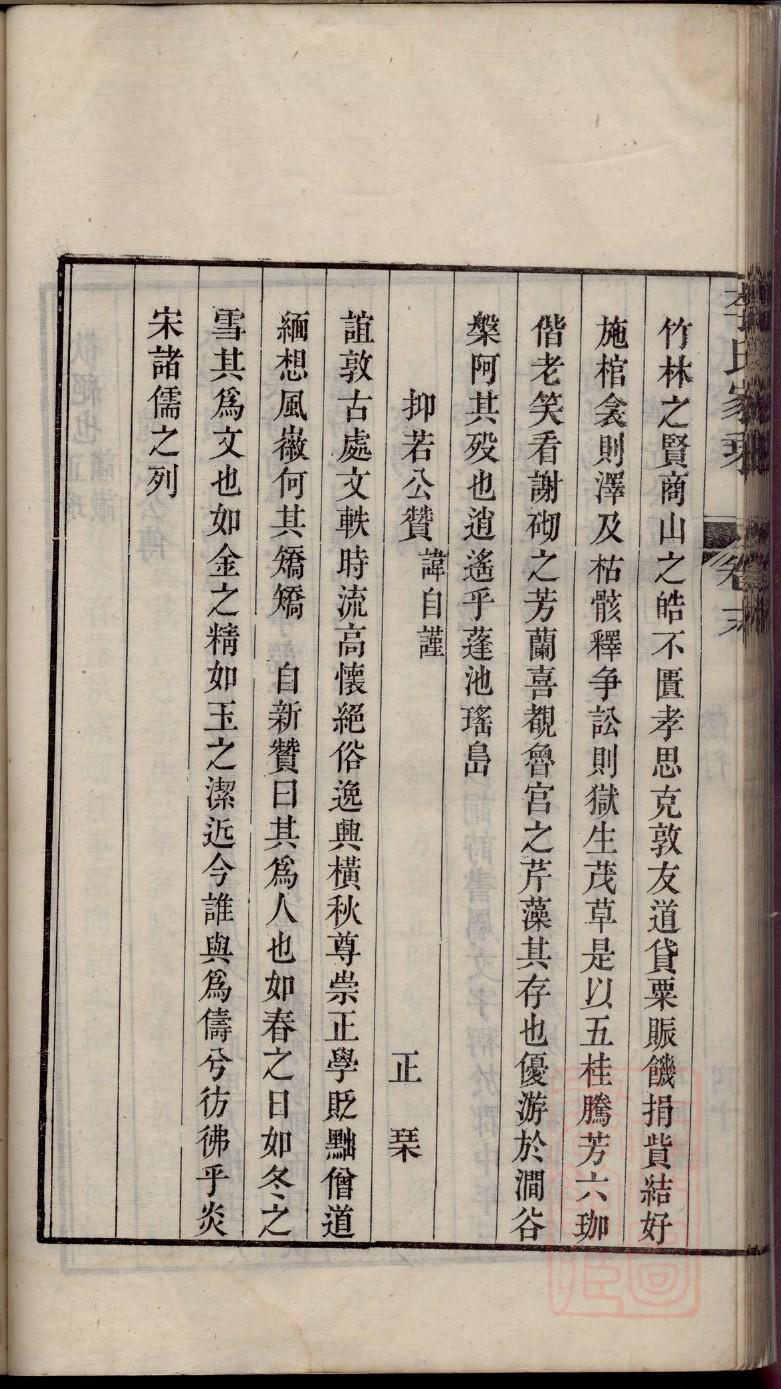 竹林之賢商山之皓不匱孝思克敦友道貸粟賑饑捐貲結好
施棺衾則澤及枯骸釋争訟則獄生茂草是以五桂騰芳六珈
偕老笑看謝砌之芳蘭喜覩魯宮之芹藻其存也優游於澗谷
槃阿其歿也逍遙乎蓬池瑤島
抑若公贊 諱自謹 正琹
誼敦古處文軼時流高懷絕俗逸興橫秋尊崇正學貶黜僧道
緬想風嶶何其矯矯 自新贊曰其爲人也如春之日如冬之
雪其爲文也如金之精如玉之潔近今誰與爲儔兮彷彿乎炎
宋諸儒之列